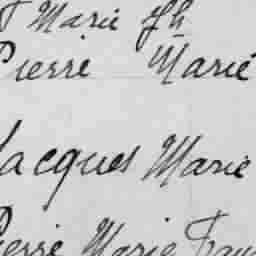 Marie
Pierre Marie
Jacques Marie
Pierre Marie Fran